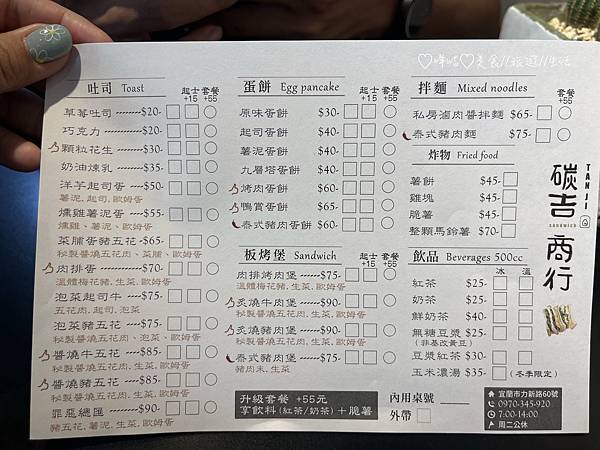 ♡嗶咕♡美食//旅遊//生活
吐司 Toast 起士+15 套餐+55
草莓吐司 --------$20-
巧克力 ---------$20-
顆粒花生 -------$30-
奶油煉乳 -------$35-
洋芋起司蛋 ----$50-
薯泥.起司.歐姆蛋
燻雞薯泥蛋 ----$55-
燻雞、薯泥、歐姆蛋
菜脯蛋豬五花-$65-
秘製醬燒五花肉、菜脯、歐姆蛋
肉排蛋 ---------$70-
溫體梅花豬.生菜.歐姆蛋
泡菜起司牛 ----$75-
五花肉.起司.生菜
泡菜豬五花 ----$75-
秘製醬燒五花肉、泡菜、歐姆蛋
醬燒牛五花 ----$85-
秘製醬燒五花肉.生菜.歐姆蛋
醬燒豬五花 ----$85-
秘製醬燒五花肉.生菜.歐姆蛋
罪惡總匯 -------$90-
豬五花.薯泥.生菜.歐姆蛋
蛋餅 Egg pancake 起士+15 套餐+55
原味蛋餅 $30-
起司蛋餅 $40-
薯泥蛋餅 $40-
九層塔蛋餅 $40-
烤肉蛋餅 $60-
鴨賞蛋餅 $65-
泰式豬肉蛋餅 $60-
板烤堡 Sandwich 起士+15 套餐+55
肉排烤肉堡 ------$75-
溫體梅花豬.生菜.歐姆蛋
炙燒牛肉堡 ------$90-
秘製醬燒五花肉.生菜.歐姆蛋
炙燒豬肉堡 ------$90-
秘製醬燒五花肉.生菜.歐姆蛋
泰式豬肉堡 ------$75-
豬肉末.生菜
升級套餐 +55元
享飲料(紅茶/奶茶)＋脆薯
拌麵 Mixed noodles 套餐+55
私房滷肉醬拌麵 $65-
泰式豬肉麵 $75-
炸物 Fried food
薯餅 $45-
雞塊 $45-
脆薯 $45-
整顆馬鈴薯 $70-
飲品 Beverages 500cc
冰 溫
紅茶 $25-
奶茶 $25-
鮮奶茶 $40-
無糖豆漿 $25-
(非基改黃豆)
豆漿紅茶 $30-
玉米濃湯 $35- (冬季限定)
內用桌號
外帶
碳吉商行
TANJI
SANDWICH
宜蘭市力新路60號
0970-345-920
7:00-14:00
周二公休